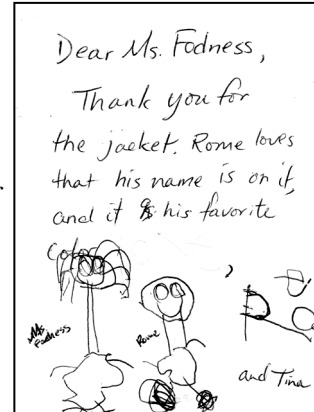 Dear Ms. Fodness,
Thank you for
the jacket. Rome loves
that his name is on it,
and it is his favorite
color
Ms. Fodness
Rome
and Tina